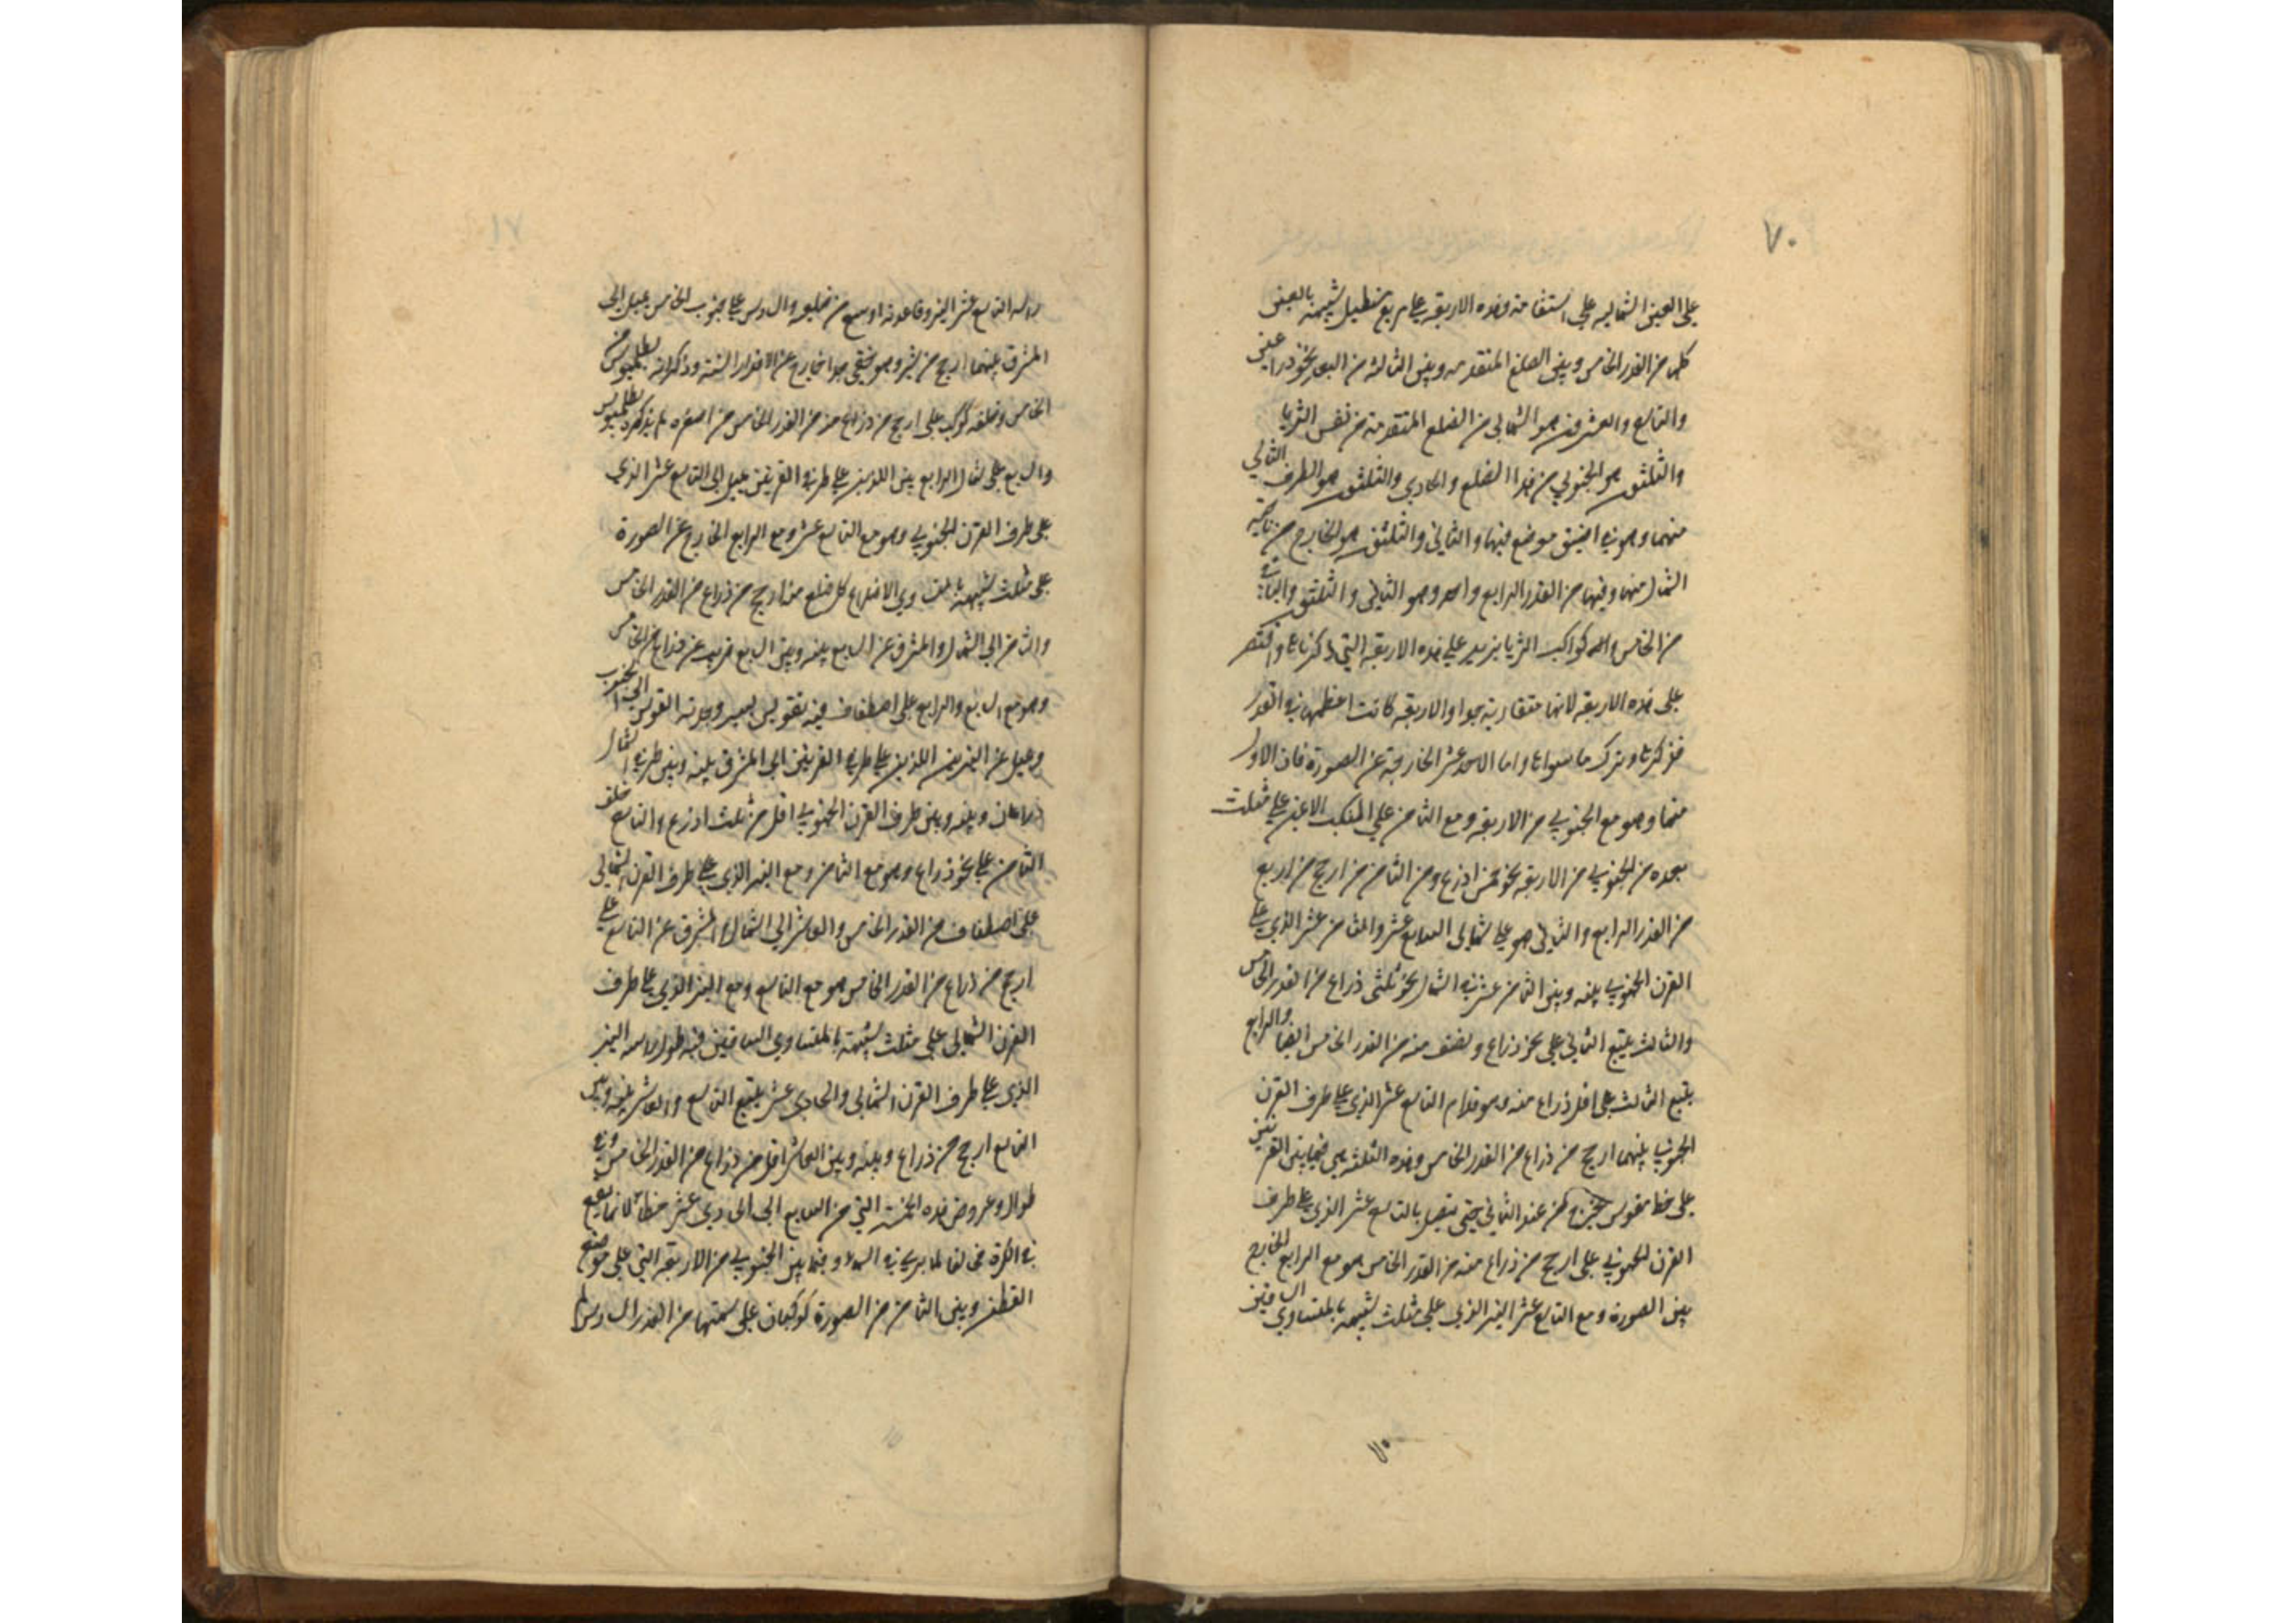 ٧٠
على العين الشماليه على استقامة وهذه الاربعة على مربع مستطيل شبيهة بالمعين
كلها من القدر الخامس وبين الضلع المتقدمه وبين الثالثة من البعد نحو ذراعين
والتاسع والعشرون هو الشمالي من الضلع المتقدمة من نفس الثريا
والثلثون هو الجنوبي من هذا الضلع والحادي والثلثون هو الطرف التالي
منهما وهو في اضيق موضع فيها والثاني والثلثون هو الخارج من ناحية
الشمال منها وفيها من القدر الرابع واحد وهو الثاني والثلثون والباقية
من الخامس واما كواكب الثريا يزيد على هذه الاربعة التي ذكرناها واقتصر
على هذه الاربعة لانها متقاربة جدا والاربعة كانت اعظمها في القدر
فذكرها وترك ما سواها واما الاحد عشر الخارجة عن الصورة فان الاول
منها وهو مع الجنوبي من الاربعة ومع الثامن على المنكب الايمن على مثلث
بعده من الجنوبي من الاربعة نحو خمس اذرع ومن الثامن من ارجح من اربع
من القدر الرابع والثاني هو على شمالي السابع عشر والثامن عشر الذي على
القرن الجنوبي بينه وبين الثامن عشر في الشمال نحو ثلثى ذراع من القدر الخامس
والثالث يتبع الثاني على نحو ذراع ونصف منه من القدر الخامس ايضا والرابع
يتبع الثالث على اقل ذراع منه وهو قدام التاسع عشر الذي على طرف القرن
الجنوبي بينهما ارجح من ذراع من القدر الخامس وهذه الثلثة هي فيما بين القرنين
على خط مقوس من عند الثاني حتى يتصل بالتاسع عشر الذي على طرف
القرن الجنوبي على ارجح من ذراع منه من القدر الخامس وهو مع الرابع الخارج
من الصورة ومع التاسع عشر النير الذي على مثلث شبيهه بالمتساوي الساقين
٧١
راسه التاسع عشر النير وقاعدته اوسع من ضلعيه والسادس على جنوب الخامس يميل الى
المشرق بينهما ارجح من شبر وهو خفي جدا خارج عن الاقدار الستة وذكر انه بطلميوس من
الخامس وخلفه كوكب على ارجح من ذراع منه من القدر الخامس من اصغره لم يذكره بطلميوس
والسابع على شمال الرابع بين اللذين على طرفي القرنين يميل الى التاسع عشر الذي
على طرف القرن الجنوبي وهو مع التاسع عشر ومع الرابع الخارج عن الصورة
على مثلث شبيهة بالمتساوي الاضلاع كل ضلع منه ارجح من ذراع من القدر الخامس
والثامن الى الشمال والمشرق عن السابع بينه وبين السابع قريب من ذراع من الخامس
وهو مع السابع والرابع على اصطفاف فيه تقويس يسير وحدبة القوس الى الجنوب
ويميل عن النيرين اللذين على طرفي القرنين الى المشرق بينه وبين طرفي الشمال
ذراعان وبينه وبين طرف القرن الجنوبي اقل من ثلث اذرع والتاسع خلف
الثامن على نحو ذراع وهو مع الثامن ومع النير الذي على طرف القرن الشمالي
على اصطفاف من القدر الخامس والعاشر الى الشمال والمشرق عن التاسع على
ارجح من ذراع من القدر الخامس وهو مع التاسع ومع النير الذي على طرف
القرن الشمالي على مثلث شبيهة بالمتساوي الساقين فيه طول راسه النير
الذي على طرف القرن الشمالي والحادي عشر يتبع التاسع والعاشر بينه وبين
التاسع ارجح من ذراع وبينه وبين العاشر اقل من ذراع من القدر الخامس وفي
طوال وعروض هذه الخمسة التي من السابع الى الحادي عشر خطأ لانها يقع
في الكرة مخالفا لما يرى في السماء وفيما بين الجنوبي من الاربعة التي على موضع
القطع وبين الثامن من الصورة كوكبان على سمتها من القدر السادس لم